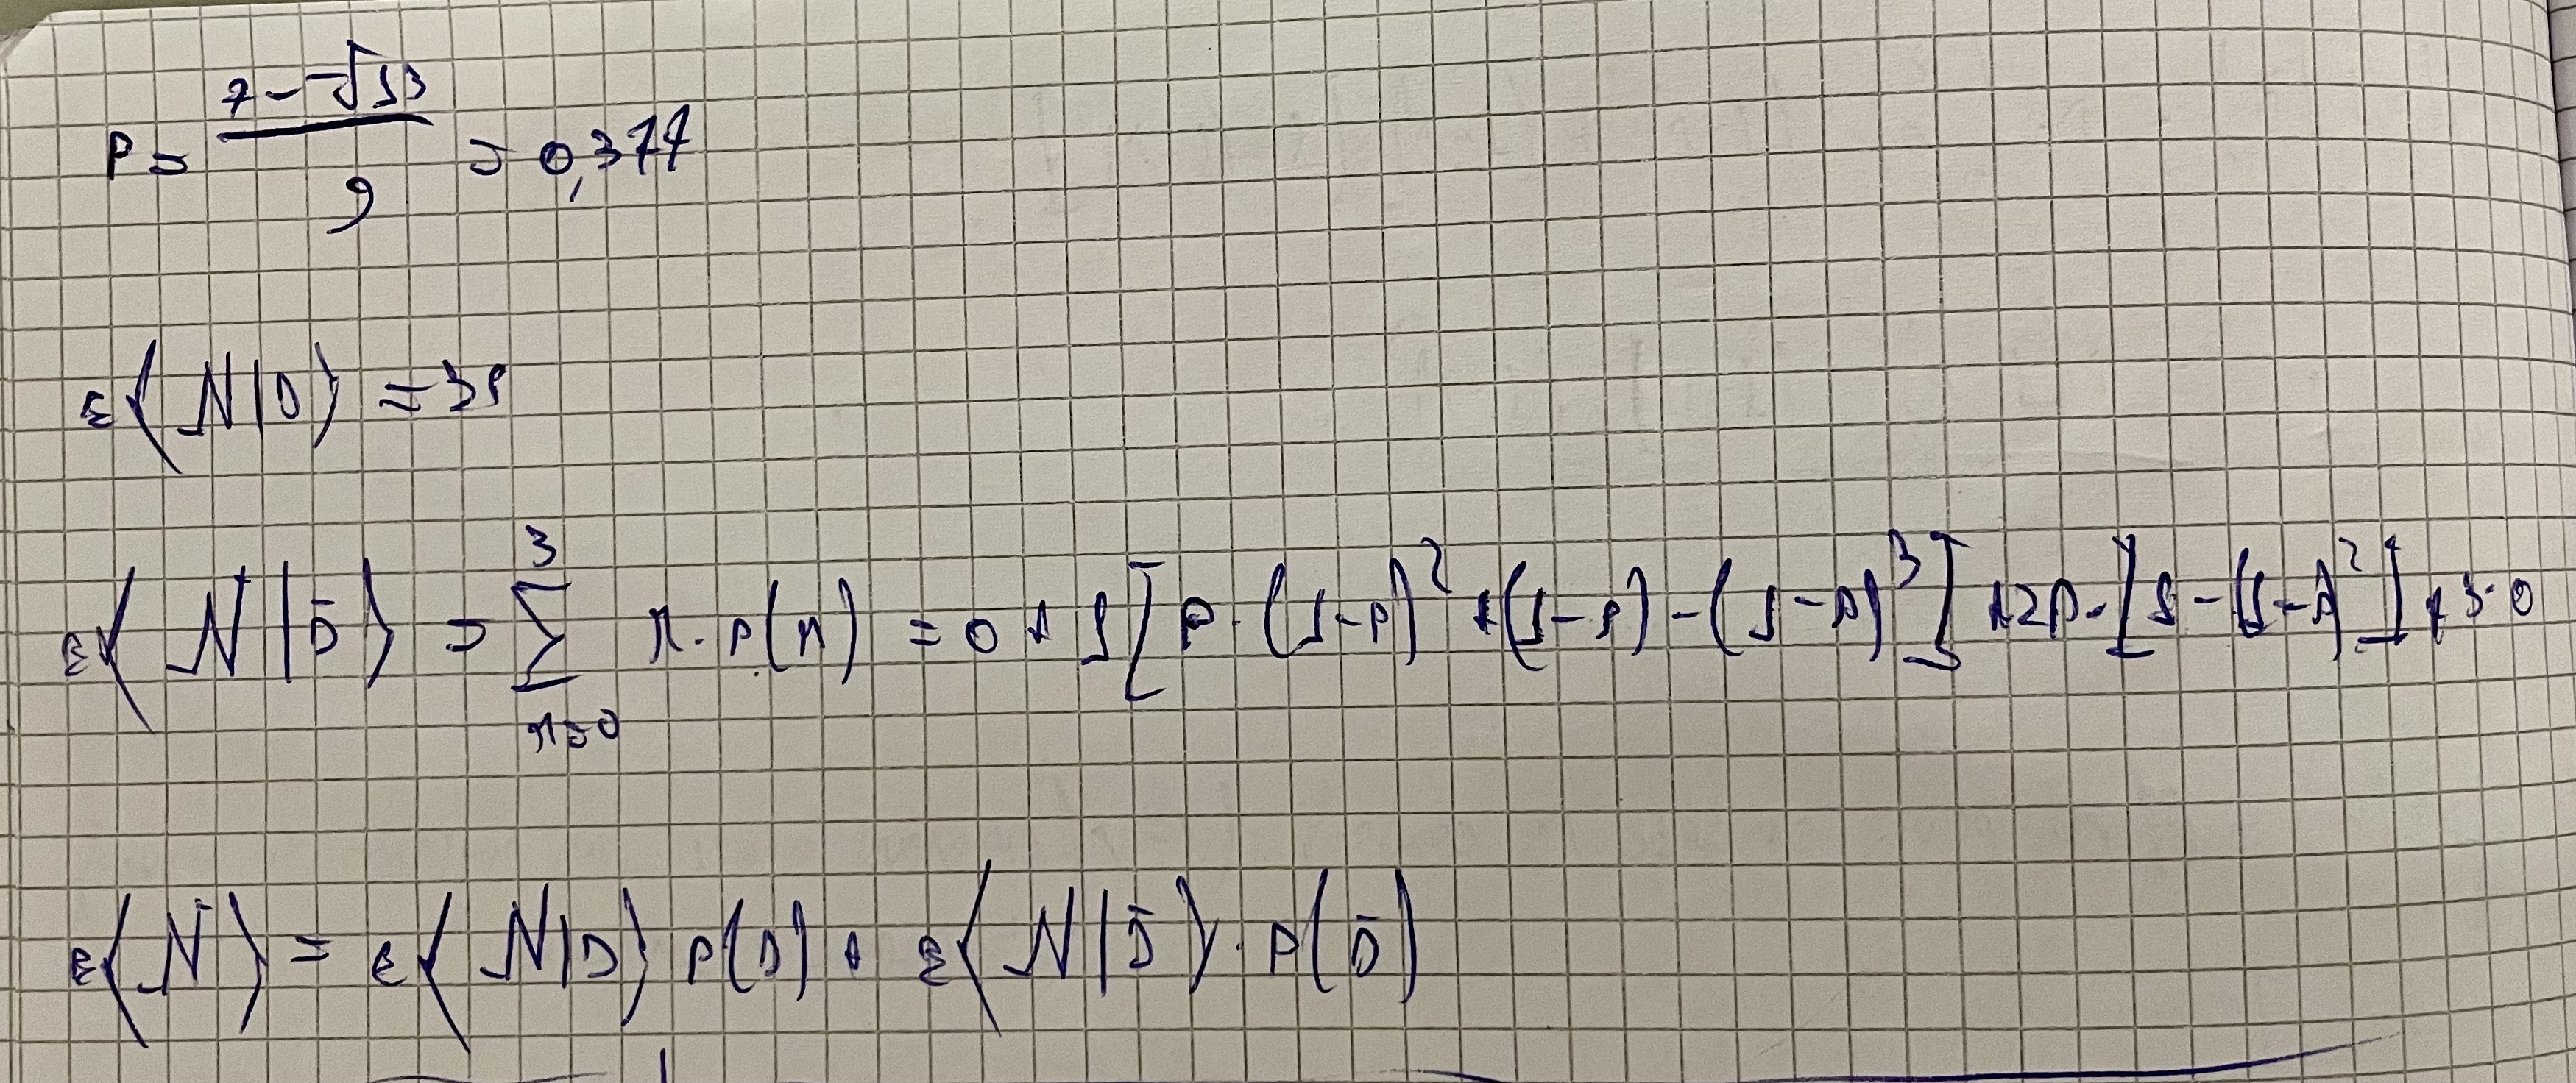 P = \frac{7 - \sqrt{13}}{9} = 0,377
E⟨N|D⟩ = 3P
E⟨N|\bar{D}⟩ = \sum_{n=0}^{3} n · P(n) = 0 + 1[P · (1-P)^2 + (1-P) - (1-P)^3] + 2P · [1 - (1-P)^2] + 3·0
E⟨N⟩ = E⟨N|D⟩ P(D) + E⟨N|\bar{D}⟩ · P(\bar{D})